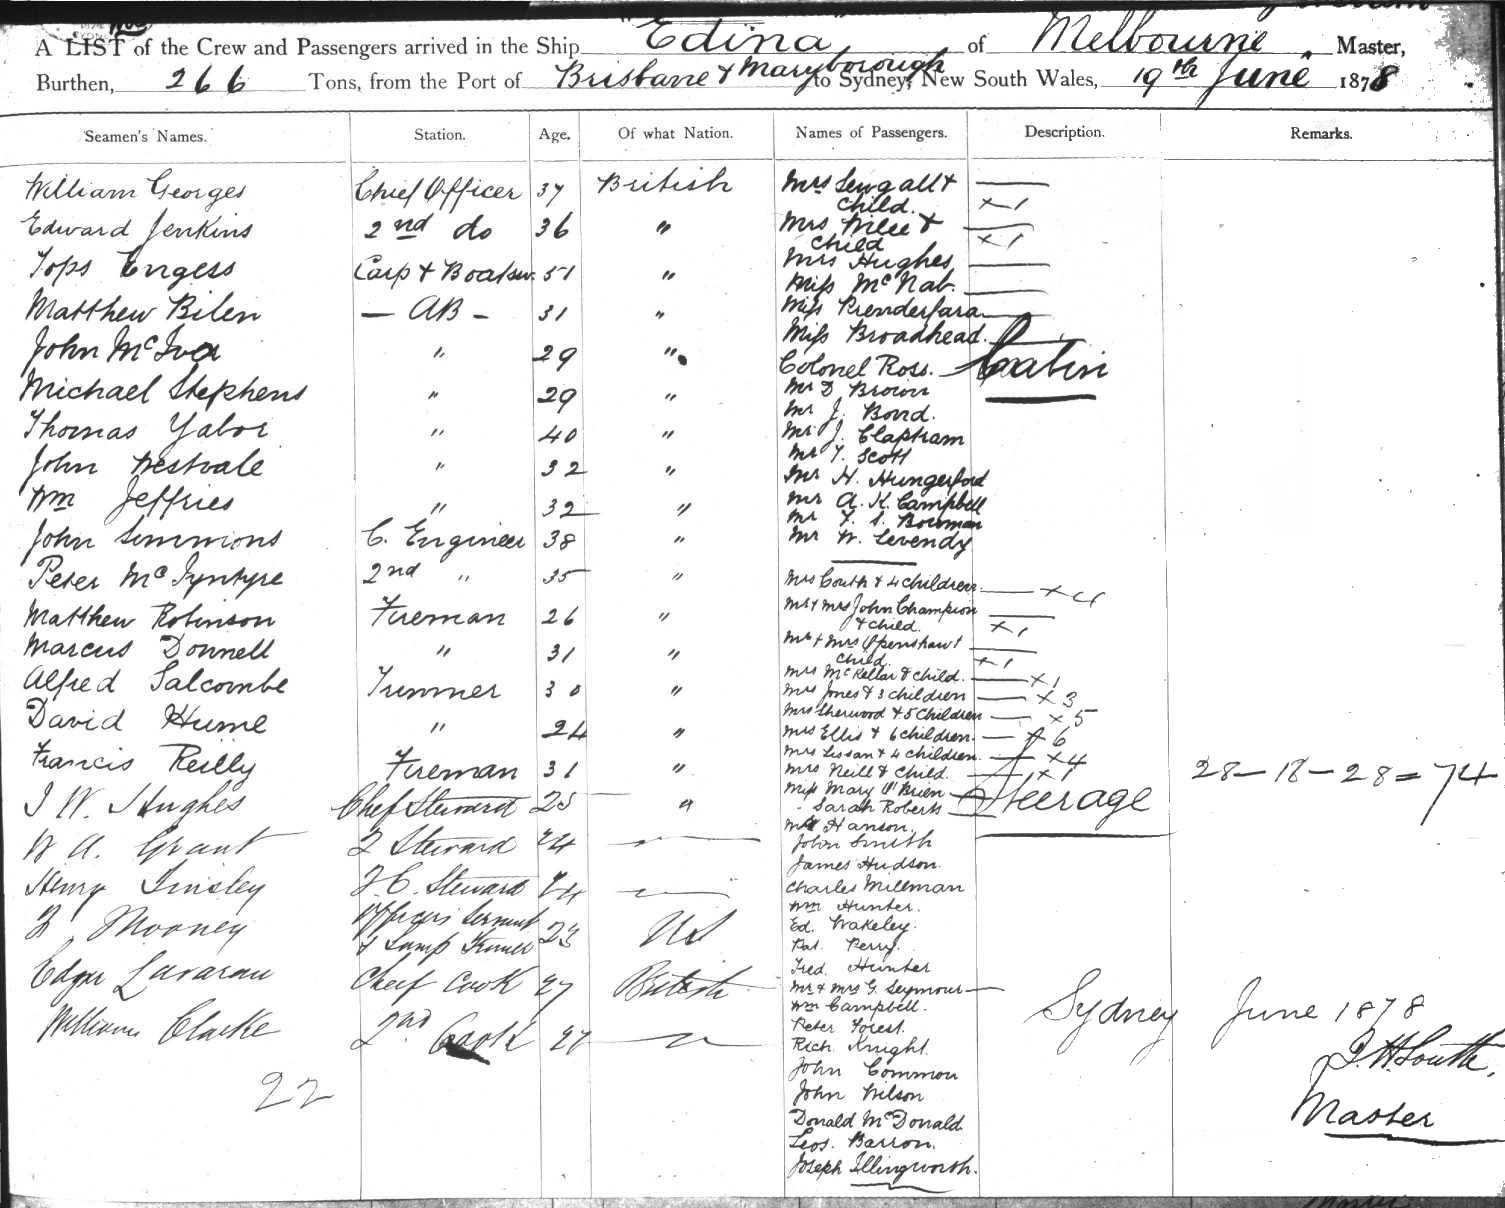 "Edina"
A LIST of the Crew and Passengers arrived in the Ship Edina of Melbourne, Master,
Burthen, 266 Tons, from the Port of Brisbane & Maryborough to Sydney, New South Wales, 19th June 1878
Seamen's Names. Station. Age. Of what Nation. Names of Passengers. Description. Remarks.
William Georges Chief Officer 37 British
Edward Jenkins 2nd do 36 "
Engess Carp & Boatsw. 51 "
Matthew Bilen — AB — 31 "
John " 29 "
Michael Stephens " 29 "
Thomas " 40 "
John Westvale " 32 "
Wm Jeffries " 32 "
John Simmions C. Engineer 38 "
Peter McIyntyre 2nd " 35 "
Matthew Robinson Fireman 26 "
Marcus Donnell " 31 "
Alfred Salcombe Trimmer 30 "
David Hume " 24 "
Francis Reilly Fireman 31 "
J W. Hughes Chef Steward 25 "
W A. Grant 2 Steward 24
Henry Tinsley F. C. Steward 24
Mooney Officers Servant
& Lamp Trimer 23 US
Edgar Chief Cook 27 British
William Clarke 2nd Cook 27
22
Mrs &
Child. x 1
Mrs &
Child x 1
Mrs Hughes
Miss McNab.
Miss
Miss Broadhead.
Colonel Ross. Cabin
Mr D Brown
Mr J. Bond.
Mr J. Clapham
Mr T. Scott
Mr H. Hungerford
Mr A. K. Campbell
Mr T. S. Bowman
Mr W. Levendy
Mrs Couth & 4 children x 4
Mr & Mrs John Champion
& child. x 1
Mr & Mrs Openshaw &
Child. x 1
Mrs McKellar & child. x 1
Mrs Jones & 3 children x 3
Mrs Sherwood & 5 Children x 5
Mrs Ellis & 6 children. x 6
Mrs Lissan & 4 children. x 4
Mrs Neill & Child. x 1
Miss Mary O'Brien
Sarah Roberts Steerage
28 — 18 — 28 = 74
Hanson.
John Smith
James Hudson.
Charles Millman
Wm Hunter.
Ed. Wakeley.
Pat. Perry.
Fred. Hunter
Mr & Mrs G. Seymour
Wm Campbell.
Peter Forest.
Rich. Knight.
John Common
John Wilson
Donald McDonald.
Barron.
Joseph Illingworth.
Sydney June 1878
Master